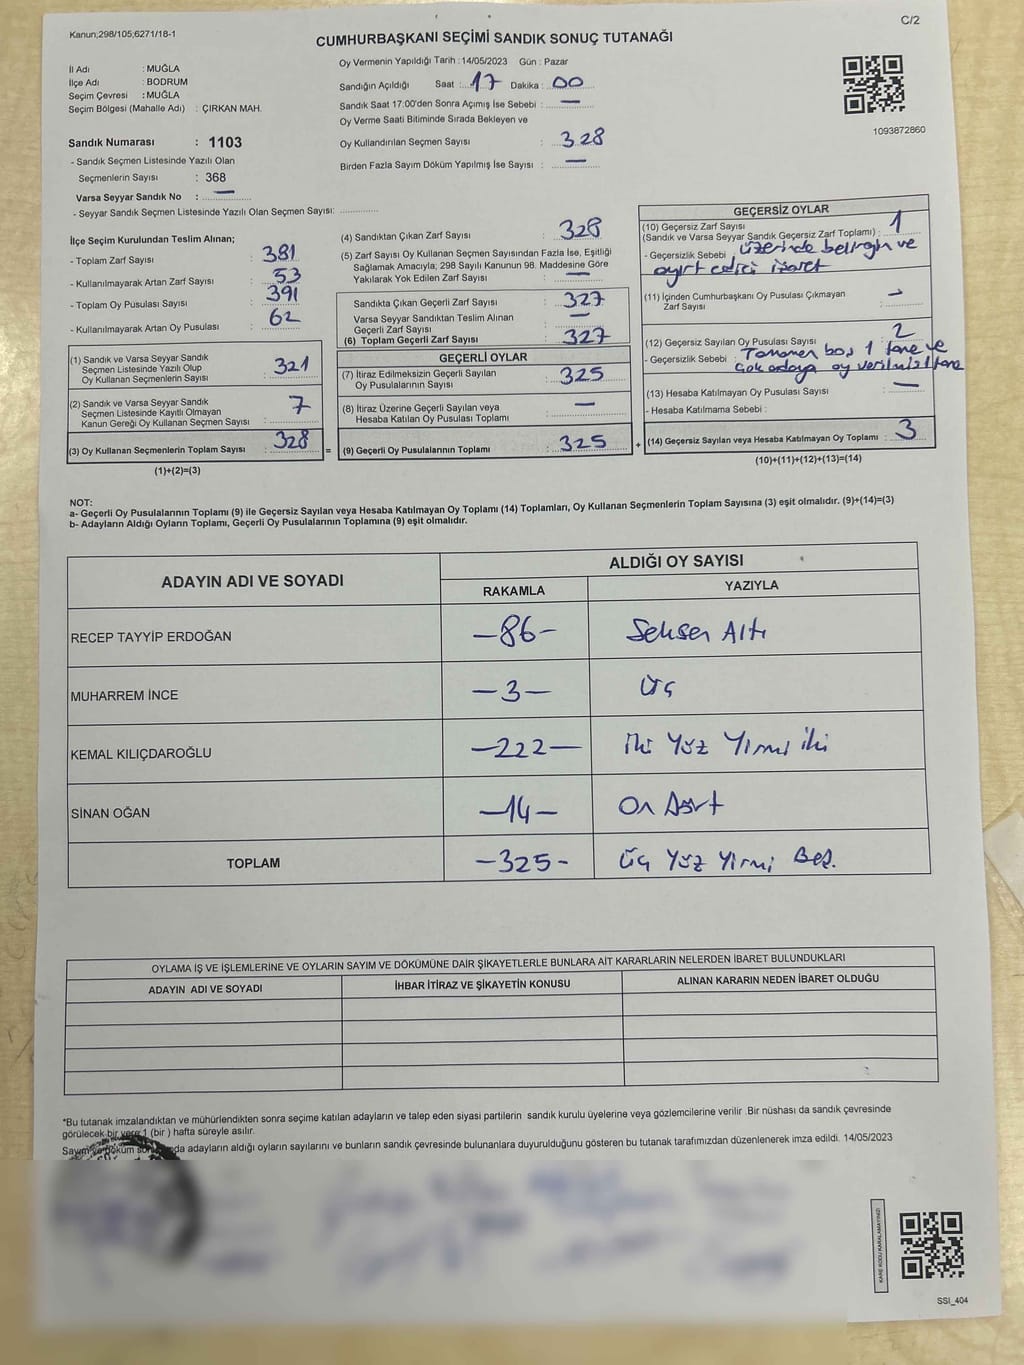 Kanun;298/105;6271/18-1
C/2
CUMHURBAŞKANI SEÇİMİ SANDIK SONUÇ TUTANAĞI
İl Adı : MUĞLA
İlçe Adı : BODRUM
Seçim Çevresi : MUĞLA
Seçim Bölgesi (Mahalle Adı) : ÇIRKAN MAH.
Sandık Numarası : 1103
- Sandık Seçmen Listesinde Yazılı Olan
Seçmenlerin Sayısı : 368
Varsa Seyyar Sandık No : —
- Seyyar Sandık Seçmen Listesinde Yazılı Olan Seçmen Sayısı:
Oy Vermenin Yapıldığı Tarih : 14/05/2023 Gün : Pazar
Sandığın Açıldığı Saat : 17 Dakika : 00
Sandık Saat 17:00'den Sonra Açımış İse Sebebi : —
Oy Verme Saati Bitiminde Sırada Bekleyen ve
Oy Kullandırılan Seçmen Sayısı : 328
Birden Fazla Sayım Döküm Yapılmış İse Sayısı : —
1093872860
İlçe Seçim Kurulundan Teslim Alınan;
- Toplam Zarf Sayısı : 381
- Kullanılmayarak Artan Zarf Sayısı : 53
- Toplam Oy Pusulası Sayısı : 391
- Kullanılmayarak Artan Oy Pusulası : 62
(1) Sandık ve Varsa Seyyar Sandık
Seçmen Listesinde Yazılı Olup
Oy Kullanan Seçmenlerin Sayısı : 321
(2) Sandık ve Varsa Seyyar Sandık
Seçmen Listesinde Kayıtlı Olmayan
Kanun Gereği Oy Kullanan Seçmen Sayısı : 7
(3) Oy Kullanan Seçmenlerin Toplam Sayısı : 328
(1)+(2)=(3)
=
(4) Sandıktan Çıkan Zarf Sayısı : 328
(5) Zarf Sayısı Oy Kullanan Seçmen Sayısından Fazla İse, Eşitliği
Sağlamak Amacıyla; 298 Sayılı Kanunun 98. Maddesine Göre
Yakılarak Yok Edilen Zarf Sayısı : —
Sandıkta Çıkan Geçerli Zarf Sayısı : 327
Varsa Seyyar Sandıktan Teslim Alınan
Geçerli Zarf Sayısı : —
(6) Toplam Geçerli Zarf Sayısı : 327
GEÇERLİ OYLAR
(7) İtiraz Edilmeksizin Geçerli Sayılan
Oy Pusulalarının Sayısı : 325
(8) İtiraz Üzerine Geçerli Sayılan veya
Hesaba Katılan Oy Pusulası Toplamı : —
(9) Geçerli Oy Pusulalarının Toplamı : 325
+
GEÇERSİZ OYLAR
(10) Geçersiz Zarf Sayısı
(Sandık ve Varsa Seyyar Sandık Geçersiz Zarf Toplamı) : 1
- Geçersizlik Sebebi : üzerinde belirgin ve
ayırt edici işaret
(11) İçinden Cumhurbaşkanı Oy Pusulası Çıkmayan
Zarf Sayısı : —
(12) Geçersiz Sayılan Oy Pusulası Sayısı : 2
- Geçersizlik Sebebi : Tamamen boş 1 tane ve
Çok adaya oy verilmiş 1 tane
(13) Hesaba Katılmayan Oy Pusulası Sayısı : —
- Hesaba Katılmama Sebebi :
(14) Geçersiz Sayılan veya Hesaba Katılmayan Oy Toplamı : 3
(10)+(11)+(12)+(13)=(14)
NOT:
a- Geçerli Oy Pusulalarının Toplamı (9) ile Geçersiz Sayılan veya Hesaba Katılmayan Oy Toplamı (14) Toplamları, Oy Kullanan Seçmenlerin Toplam Sayısına (3) eşit olmalıdır. (9)+(14)=(3)
b- Adayların Aldığı Oyların Toplamı, Geçerli Oy Pusulalarının Toplamına (9) eşit olmalıdır.
ADAYIN ADI VE SOYADI
ALDIĞI OY SAYISI
RAKAMLA YAZIYLA
RECEP TAYYİP ERDOĞAN —86— Seksen Altı
MUHARREM İNCE —3— Üç
KEMAL KILIÇDAROĞLU —222— İki Yüz Yirmi iki
SİNAN OĞAN —14— On Dört
TOPLAM —325— Üç Yüz Yirmi Beş.
OYLAMA İŞ VE İŞLEMLERİNE VE OYLARIN SAYIM VE DÖKÜMÜNE DAİR ŞİKAYETLERLE BUNLARA AİT KARARLARIN NELERDEN İBARET BULUNDUKLARI
ADAYIN ADI VE SOYADI İHBAR İTİRAZ VE ŞİKAYETİN KONUSU ALINAN KARARIN NEDEN İBARET OLDUĞU
*Bu tutanak imzalandıktan ve mühürlendikten sonra seçime katılan adayların ve talep eden siyasi partilerin sandık kurulu üyelerine veya gözlemcilerine verilir .Bir nüshası da sandık çevresinde
görülecek bir yere 1 (bir ) hafta süreyle asılır.
Sayım ve döküm sonunda adayların aldığı oyların sayılarını ve bunların sandık çevresinde bulunanlara duyurulduğunu gösteren bu tutanak tarafımızdan düzenlenerek imza edildi. 14/05/2023
KARE KODU KARALAMAYINIZ!
SSI_404